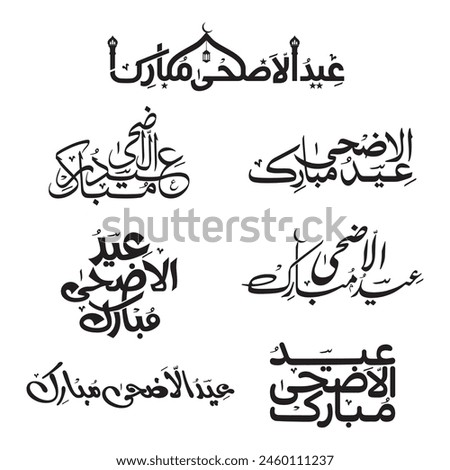 عيد الاضحى مبارك
الاضحى
عيد مبارك
الاضحى
عيد مبارك
عيد
الاضحى
مبارك
الاضحى
عيد مبارك
عيد الاضحى مبارك
عيد
الاضحى
مبارك
shutterstock
IMAGE ID: 2460111237
www.shutterstock.com